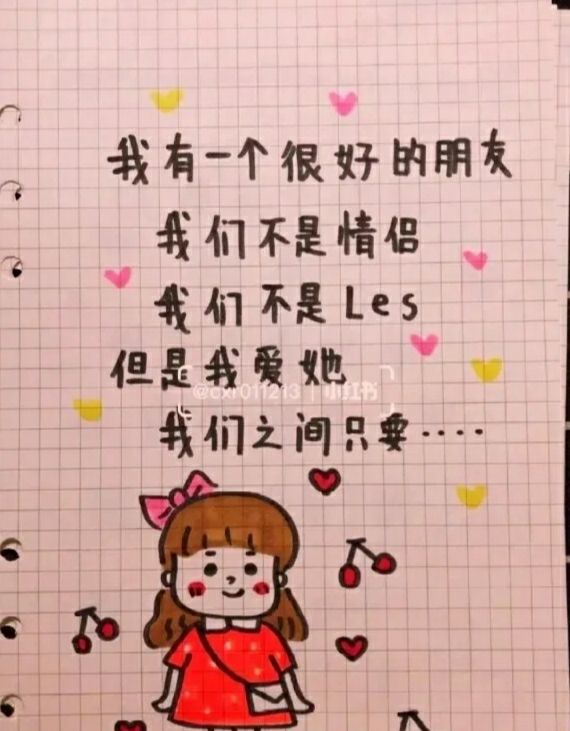 我有一个很好的朋友
我们不是情侣
我们不是Les
但是我爱她
@cxr011213 | 小红书
我们之间只要····